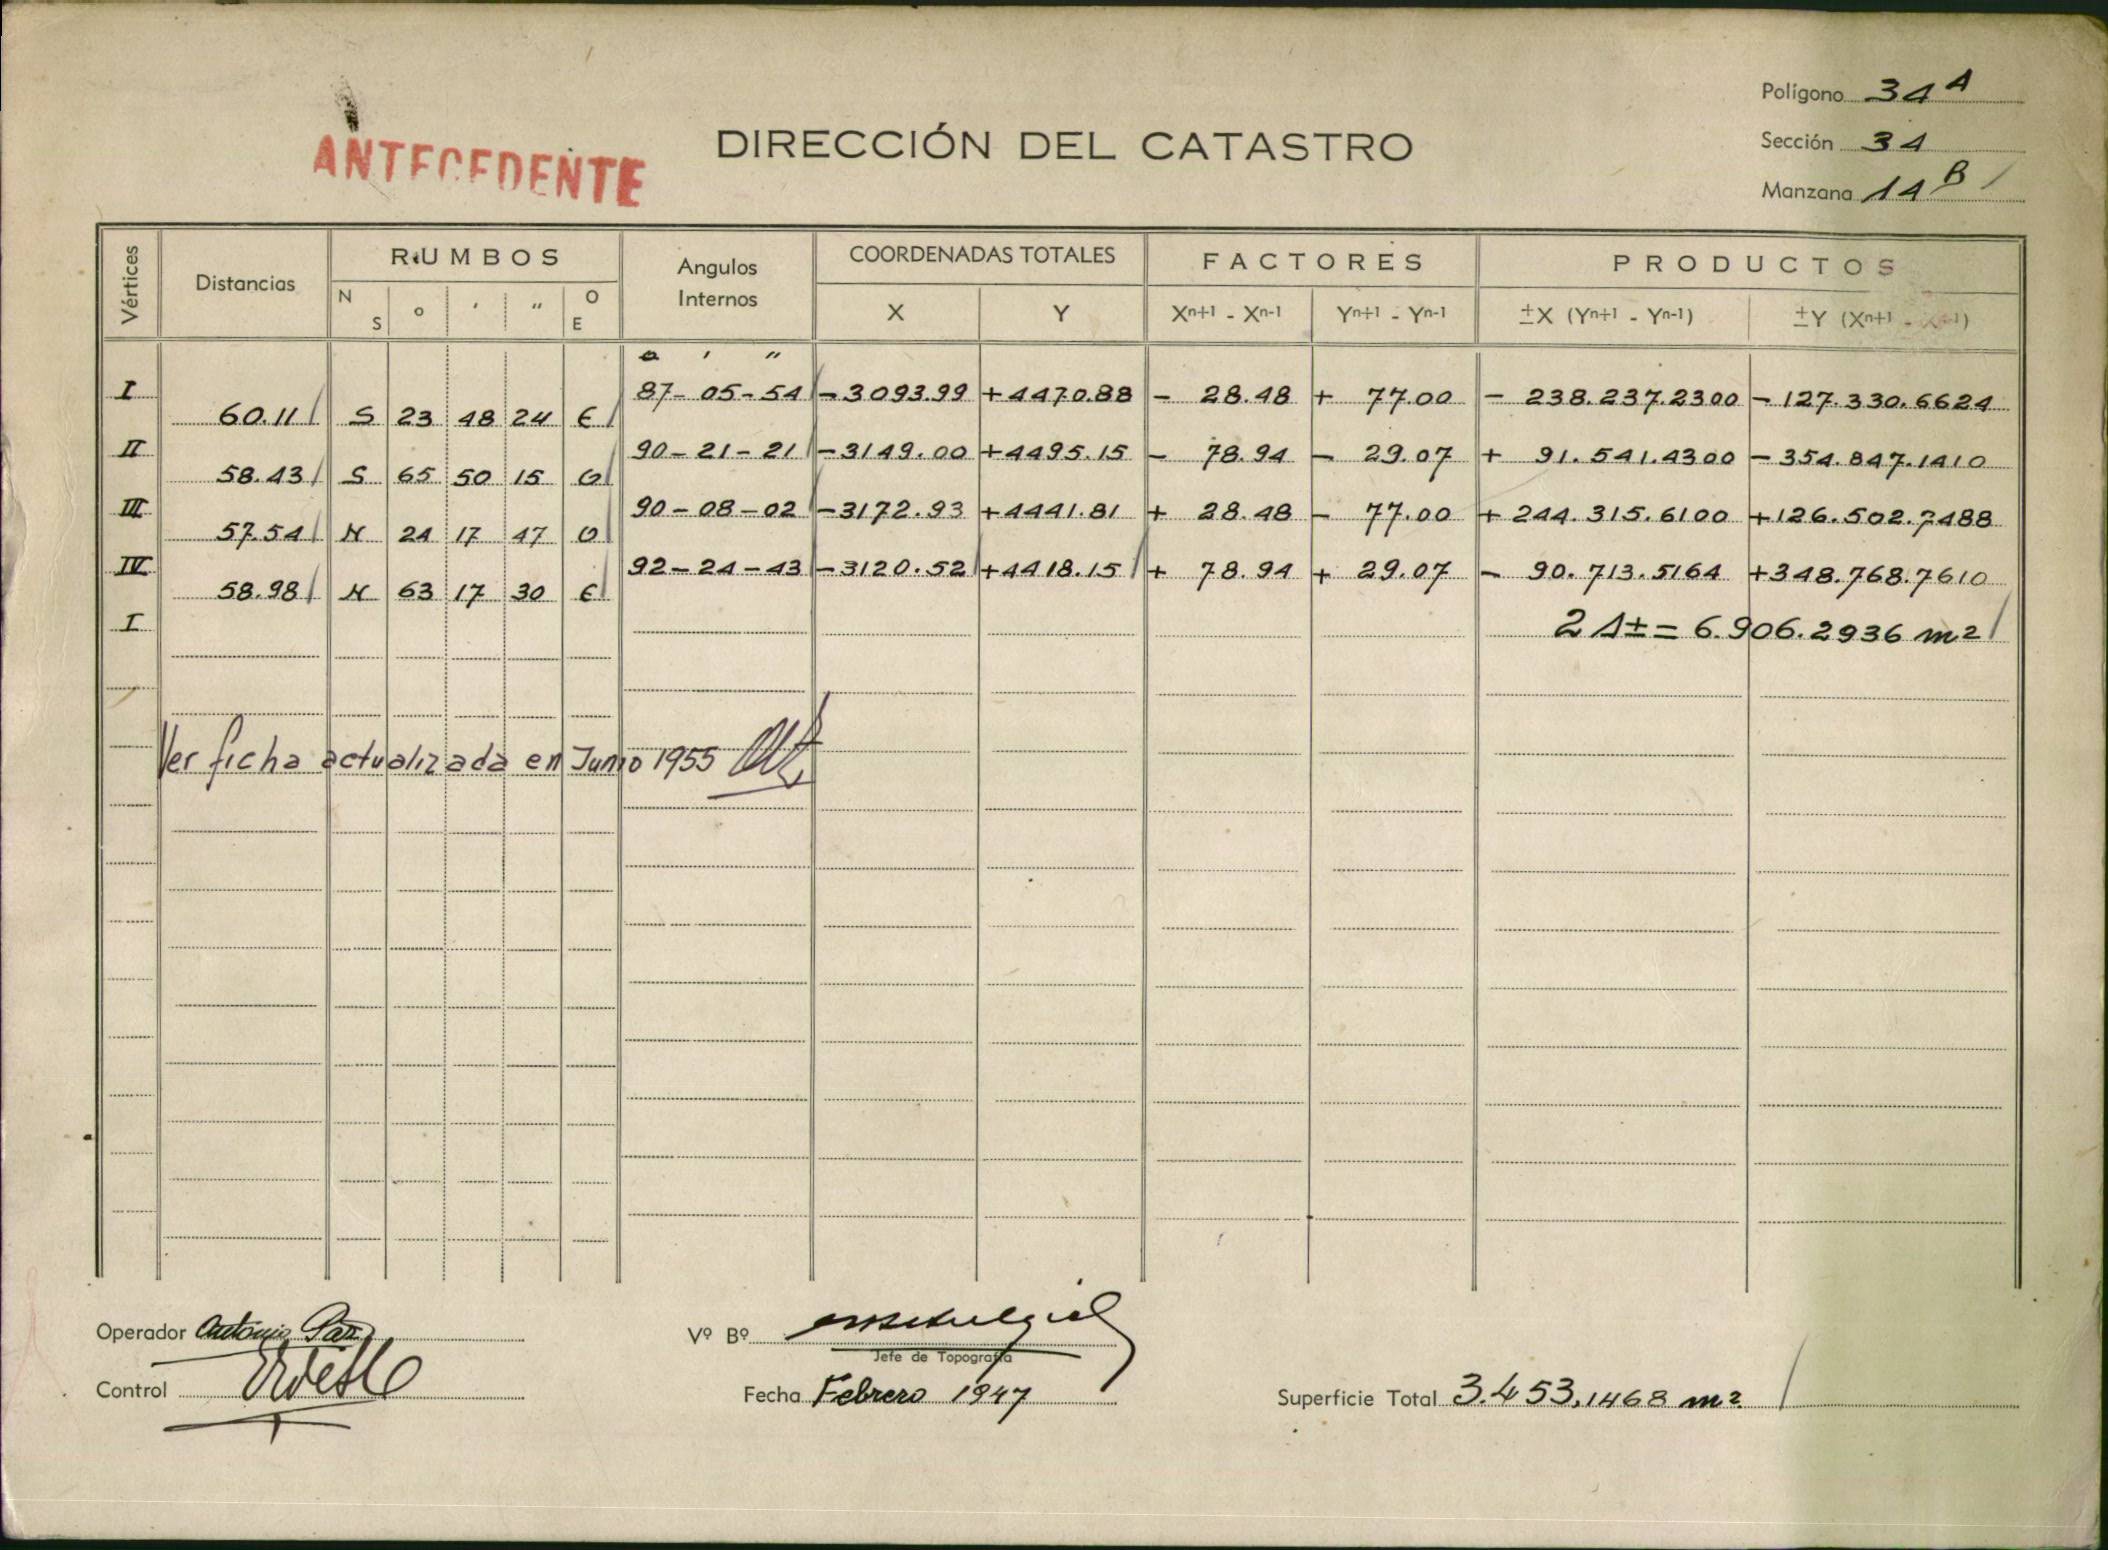 Polígono 34 A
ANTECEDENTE
DIRECCIÓN DEL CATASTRO
Sección 34
Manzana 14 B
Vértices Distancias RUMBOS Angulos Internos COORDENADAS TOTALES FACTORES PRODUCTOS
N S o ' " O E X Y Xn+1 - Xn-1 Yn+1 - Yn-1 ±X (Yn+1 - Yn-1) ±Y (Xn+1 - Xn-1)
o ' "
I 87-05-54 -3093.99 +4470.88 - 28.48 + 77.00 - 238.237.2300 - 127.330.6624
60.11 S 23 48 24 E
II 90-21-21 -3149.00 +4495.15 - 78.94 - 29.07 + 91.541.4300 - 354.847.1410
58.43 S 65 50 15 O
III 90-08-02 -3172.93 +4441.81 + 28.48 - 77.00 + 244.315.6100 +126.502.7488
57.54 N 24 17 47 O
IV 92-24-43 -3120.52 +4418.15 + 78.94 + 29.07 - 90.713.5164 +348.768.7610
58.98 N 63 17 30 E
I 2 A ± = 6.906.2936 m2
Ver ficha actualizada en Junio 1955
Operador Antonio Paz
Vº Bº
Jefe de Topografía
Control
Fecha Febrero 1947
Superficie Total 3.453,1468 m2